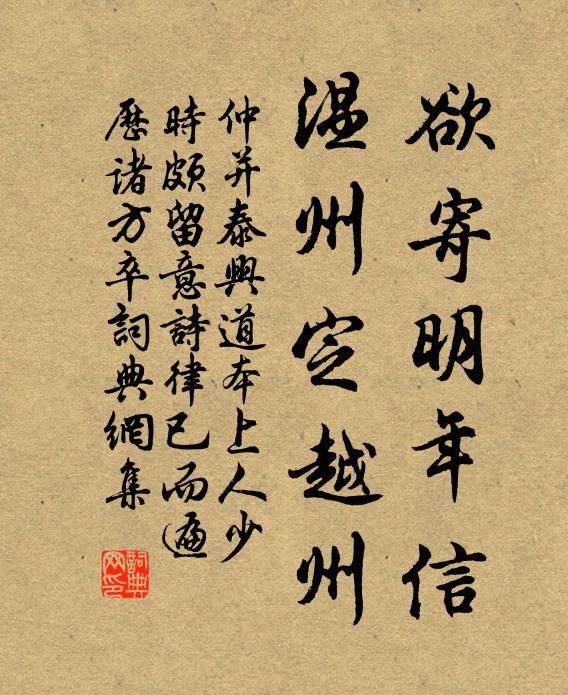 欲寄明年信
温州定越州
仲并泰興道本上人少
時頗留意詩律已而遍
歷諸方卒詞典網集
詞典網印